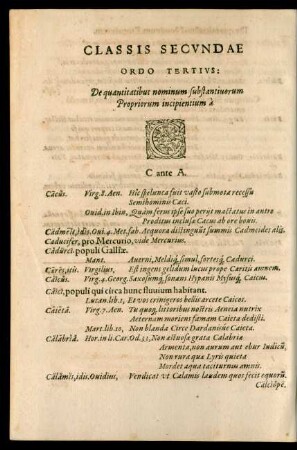 CLASSIS SECVNDAE
ORDO TERTIVS:
De quantitatibus nominum substantiuorum
Propriorum incipientium à
C
C ante A.
Cācŭs. Virg. 8. Aen. Hic spelunca fuit vasto submota recessu
Semihominis Caci.
Ouid. in Ibin, Quàm ferus ipse suo periit mactatus in antro
Proditus inclusæ Cacus ab ore bouis.
Cādmēĭs, ĭdis. Oui. 4. Met. fab. Aequora distinguit summis Cadmeides alis.
Caducifer, pro Mercurio, vide Mercurius.
Cădūrci, populi Galliæ.
Mant. Auerni, Meldiq́; simul, fortesq́; Cadurci.
Cærēs, ĭtis. Virgilius, Est ingens gelidum lucus prope Cæritis amnem.
Căīcŭs. Virg. 4. Georg. Saxosumq́; sonans Hypanis Mysusq́; Caicus.
Căīci, populi qui circa hunc fluuium habitant.
Lucan. lib. 1. Et vos crinigeros bellis arcere Caicos.
Cāiētă. Virg. 7. Aen. Tu quoq; littoribus nostris Aeneia nutrix
Aeternam moriens famam Caieta dedisti.
Mart. lib. 10, Non blanda Circe Dardanisue Caieta.
Călăbrĭă. Hor. in li. Car. Od. 31, Non æstuosa grata Calabria
Armenta, non aurum aut ebur Indicũ,
Non rura quæ Lyris quieta
Mordet aqua taciturnus amnis.
Călămĭs, ĭdis. Ouidius, Vendicat vt Calamis laudem quos fecit equorũ.
Callĭŏpē.